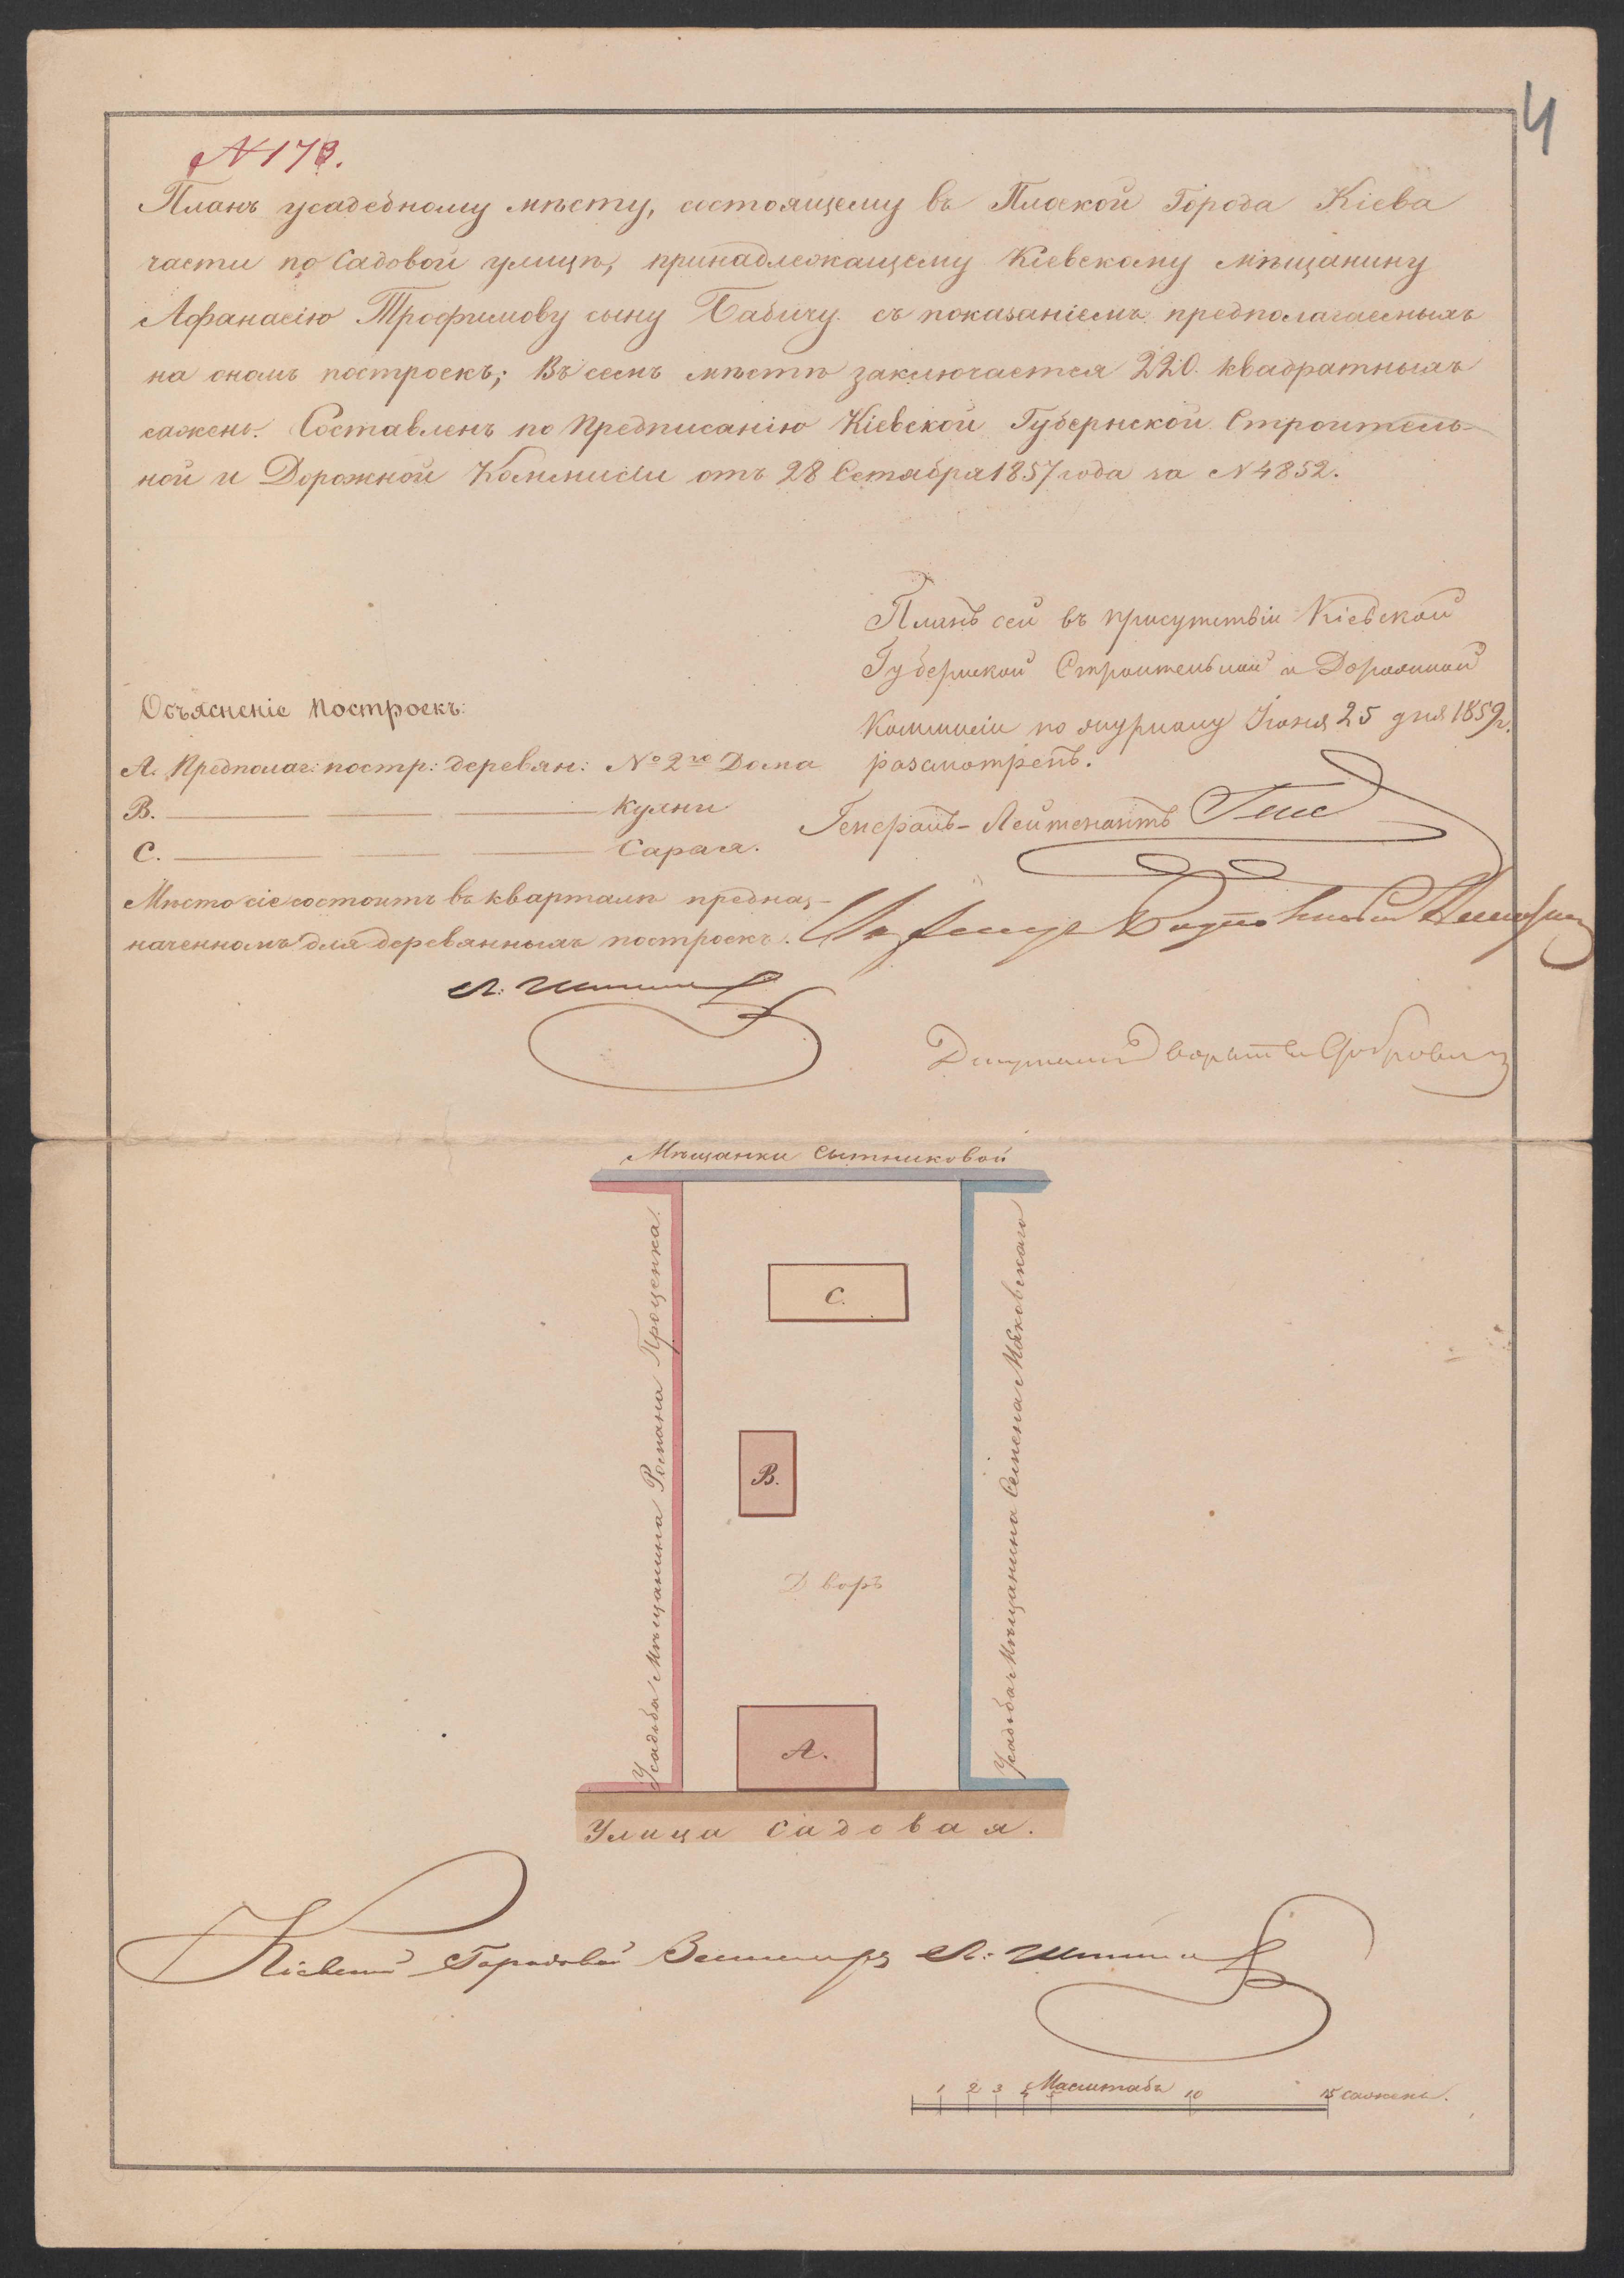 4
N 173.
Планъ усадебному мѣсту, состоящему въ Плоской Города Кіева
части по Садовой улицѣ, принадлежащему Кіевскому мѣщанину
Афанасію Трофимову сыну Бабичу съ показаніемъ предполагаемыхъ
на ономъ построекъ; Въ семъ мѣстѣ заключается 220. квадратныхъ
сажень. Составленъ по Предписанію Кіевской Губернской Строитель-
ной и Дорожной Коммисіи отъ 28 Сетября 1857 года за N 4852.
Планъ сей въ присутствіи Кіевской
Губернской Строительной и Дорожной
Коммисіи по журналу Іюня 25 дня 1859 г.
разсмотрѣнъ.
Генералъ-Лейтенантъ
Объясненіе Построекъ:
А. Предполаг: постр: деревян: № 2го Дома
В. Кухни
С. Сарая.
Мѣсто сіе состоитъ въ кварталѣ предназ-
наченномъ для деревянныхъ построекъ.
Мѣщанки Сытниковой
Усадьба Мѣщанина Романа Проценка.
Усадьба Мѣщанина Семена Маковскаго
С.
В.
Дворъ
А.
Улица Садовая.
Кіевскій Городовой Землемѣръ Л:
Масштабъ
1 2 3 4 5 10 15 сажень.